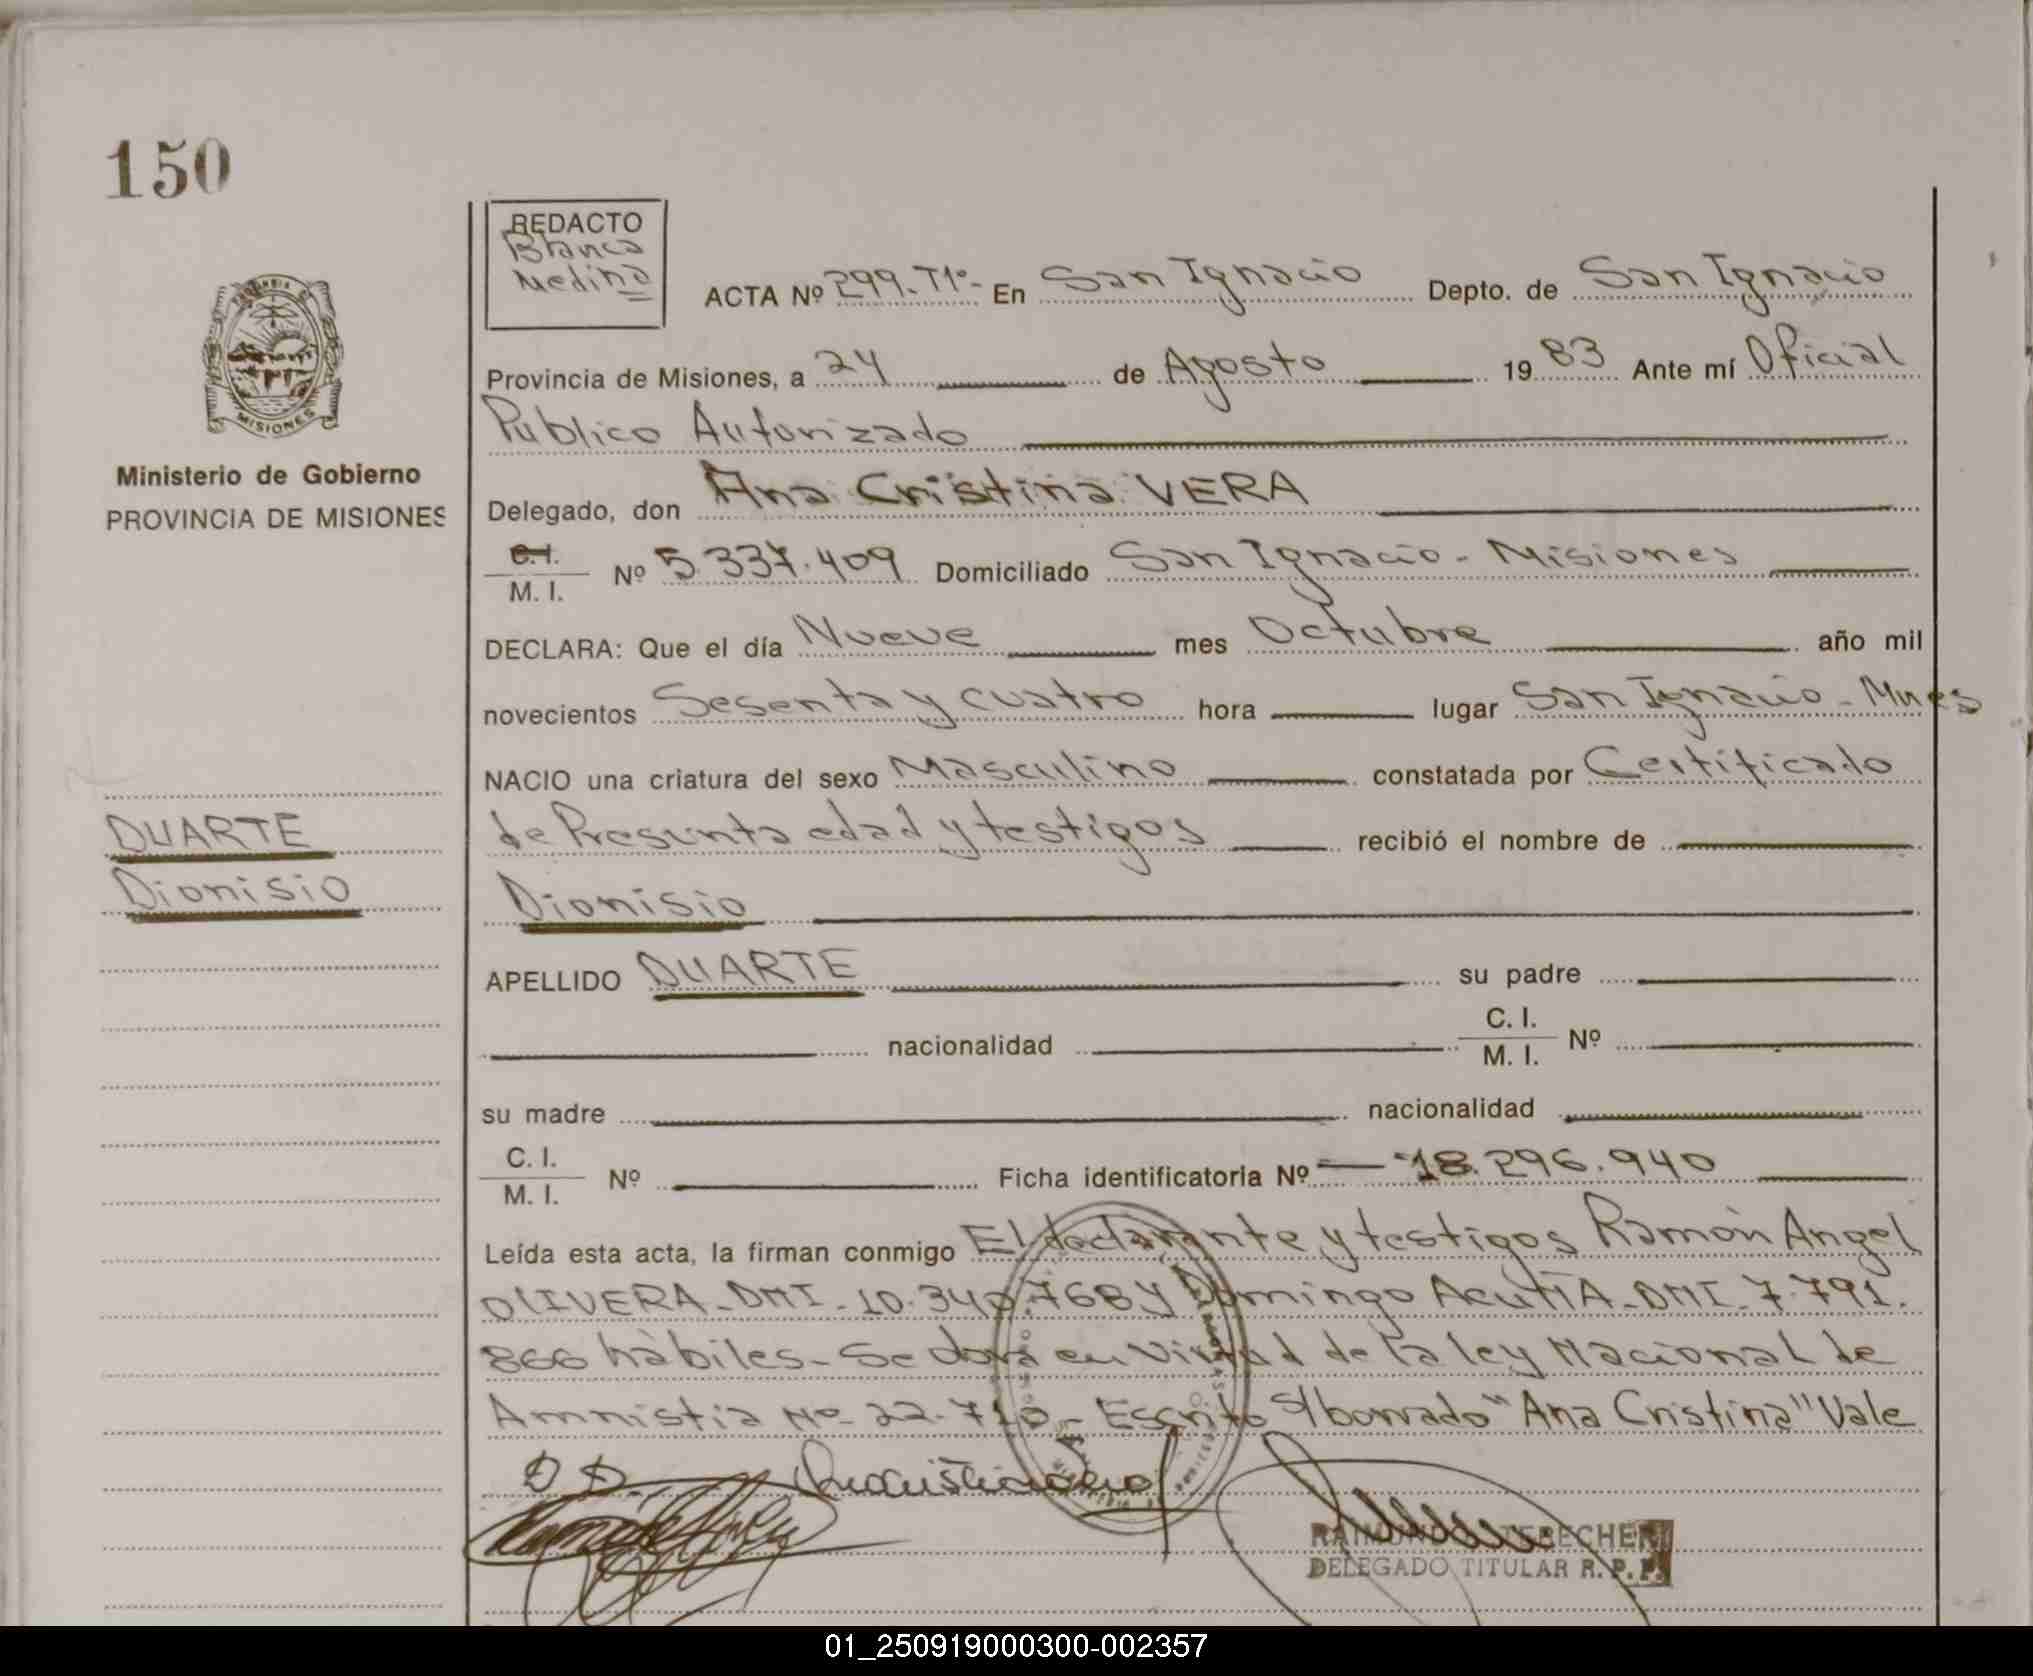 150
REDACTO
Blanca
Medina
ACTA Nº 299-Tº1º- En San Ignacio Depto. de San Ignacio
PROVINCIA DE
MISIONES
Provincia de Misiones, a 24 de Agosto 1983 Ante mí Oficial
Publico Autorizado
Ministerio de Gobierno
PROVINCIA DE MISIONES
Delegado, don Ana Cristina VERA
C. I.
M. I. Nº 5.337.409 Domiciliado San Ignacio - Misiones
DECLARA: Que el día Nueve mes Octubre año mil
novecientos Sesenta y cuatro hora lugar San Ignacio - Mnes
NACIO una criatura del sexo Masculino constatada por Certificado
DUARTE
de Presunta edad y testigos recibió el nombre de
Dionisio
Dionisio
APELLIDO DUARTE su padre
nacionalidad C. I.
M. I. Nº
su madre nacionalidad
C. I.
M. I. Nº Ficha identificatoria Nº 18.296.940
Leída esta acta, la firman conmigo El declarante y testigos Ramón Angel
OLIVERA - DMI - 10.340.768 y Domingo ACUÑA - DMI - 7.791.
866 hábiles - Se dora en virtud de la ley Nacional de
Amnistia Nº 22.710 - Escrito s/borrado "Ana Cristina" Vale
D D.
RAIMUNDO TEBECHERI
DELEGADO TITULAR R. P. P.
01_250919000300-002357